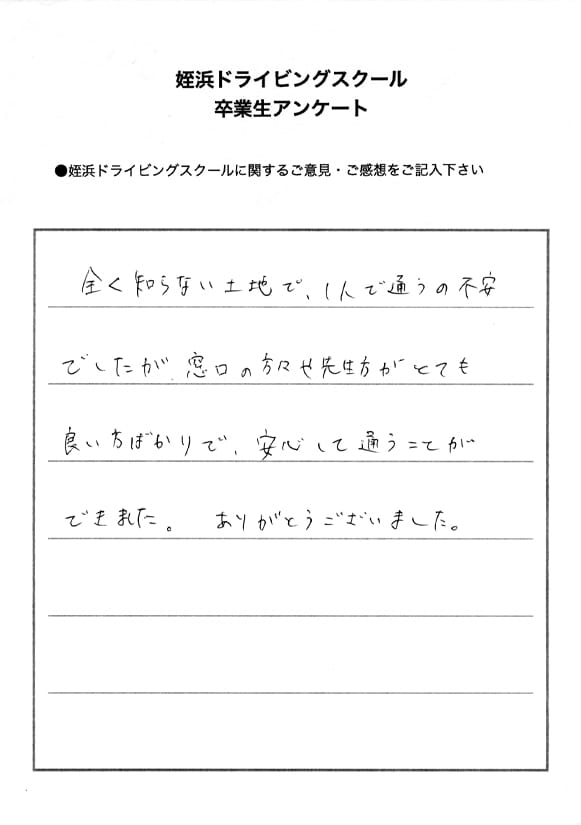 姪浜ドライビングスクール
卒業生アンケート
●姪浜ドライビングスクールに関するご意見・ご感想をご記入下さい
全く知らない土地で、1人で通うの不安
でしたが、窓口の方々や先生方がとても
良い方ばかりで、安心して通うことが
できました。 ありがとうございました。